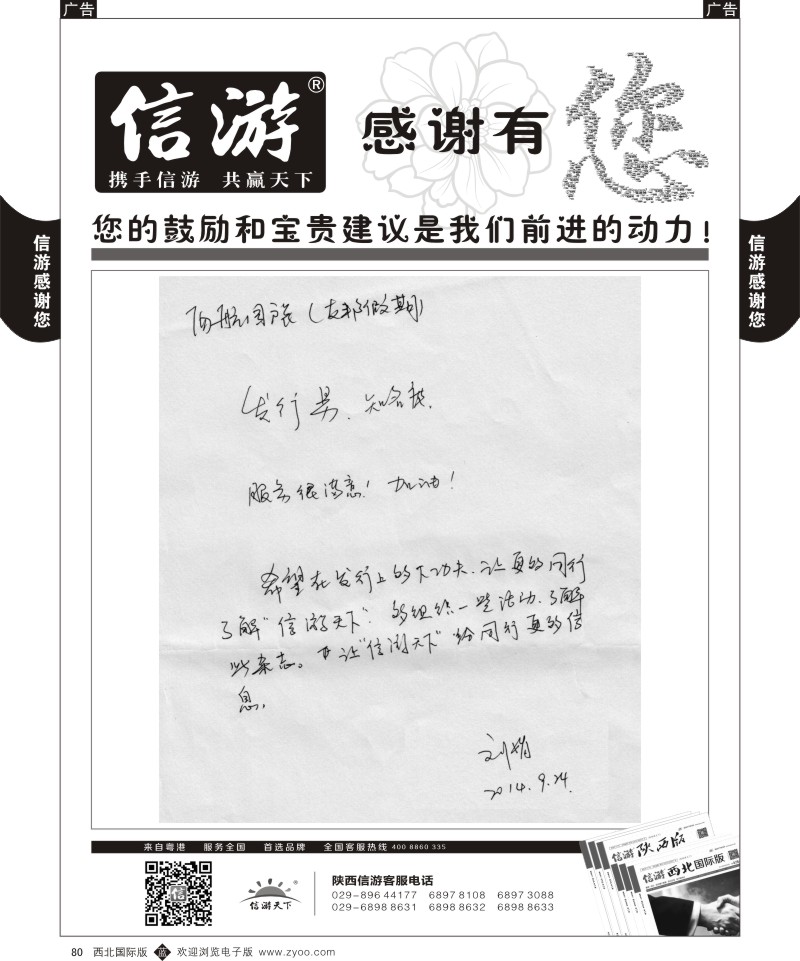 广告
广告
信游®
携手信游 共赢天下
感谢有您
您的鼓励和宝贵建议是我们前进的动力!
信游感谢您
信游感谢您
西航国旅(友邦假期)
发行果、知名度.
服务很满意! 加油!
希望在发行上多下功夫.让更多同行
了解"信游天下". 多组织一些活动.了解
些杂志。再让"信游天下"给同行更多信
息.
刘娟
2014.9.24.
来自粤港 服务全国 首选品牌 全国客服热线 400 8860 335
信游
信游天下
陕西信游客服电话
029-896 44177 6897 8108 6897 3088
029-6898 8631 6898 8632 6898 8633
信游 陕西版
信游 西北国际版
80 西北国际版 蓝 欢迎浏览电子版 www.zyoo.com